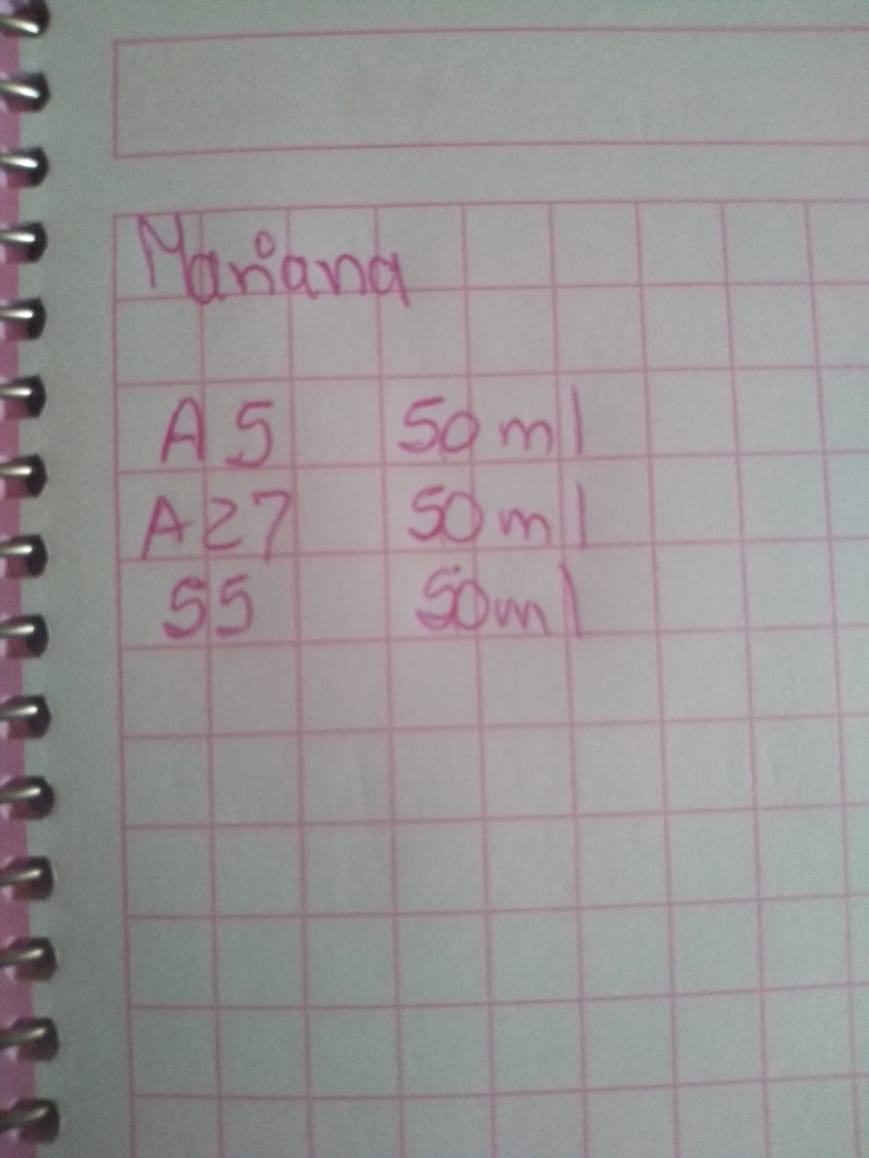 Mariana
A5 50ml
A27 50ml
S5 50ml